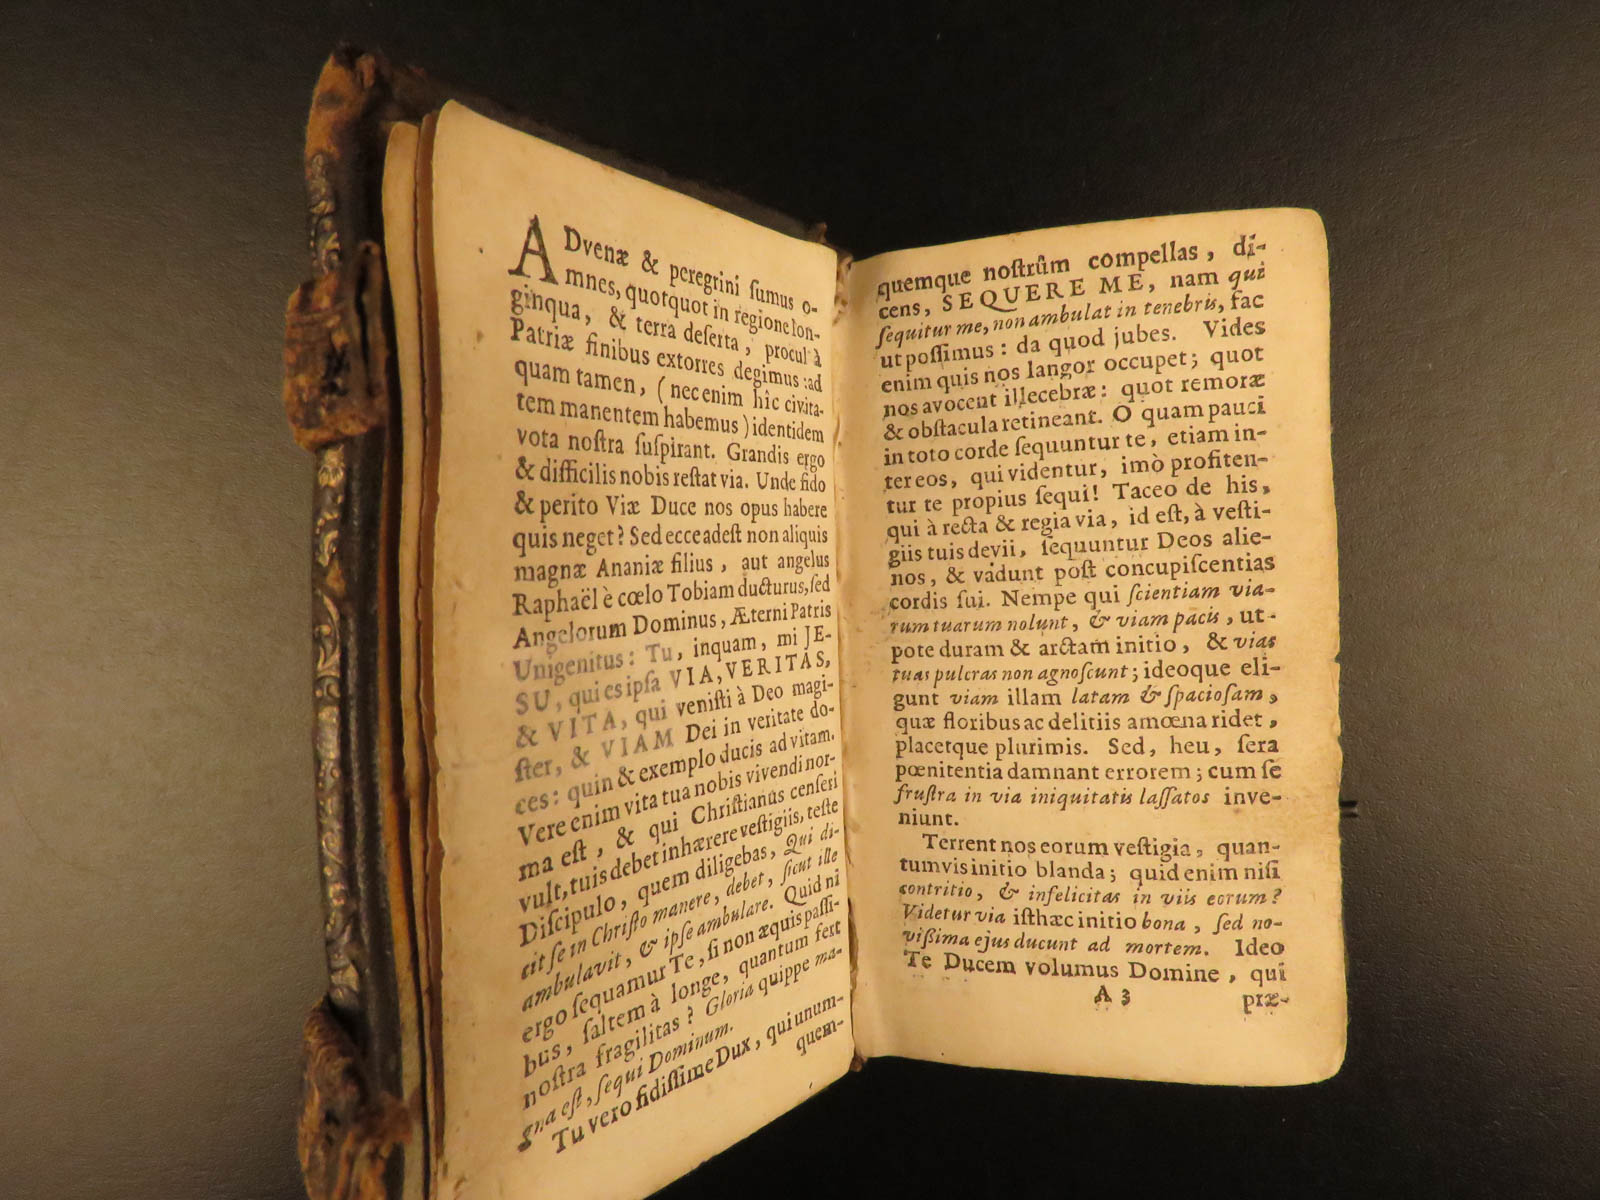 ADvenæ & peregrini ſumus o-
mnes, quotquot in regione lon-
ginqua, & terra deſerta, procul à
Patriæ finibus extorres degimus :ad
quam tamen, (nec enim hîc civita-
tem manentem habemus) identidem
vota noſtra ſuſpirant. Grandis ergo
& difficilis nobis reſtat via. Unde fido
& perito Viæ Duce nos opus habere
quis neget? Sed ecce adeſt non aliquis
magnæ Ananiæ filius, aut angelus
Raphaël è cœlo Tobiam ducturus, ſed
Angelorum Dominus, Æterni Patris
Unigenitus: Tu, inquam, mi JE-
SU, qui es ipſa VIA, VERITAS,
& VITA, qui veniſti à Deo magi-
ſter, & VIAM Dei in veritate do-
ces: quin & exemplo ducis ad vitam.
Vere enim vita tua nobis vivendi nor-
ma eſt, & qui Chriſtianus cenſeri
vult, tuis debet inhærere veſtigiis, teſte
Diſcipulo, quem diligebas, Qui di-
cit ſe in Chriſto manere, debet, ſicut ille
ambulavit, & ipſe ambulare. Quid ni
ergo ſequamur Te, ſi non æquis paſſi-
bus, ſaltem à longe, quantum fert
noſtra fragilitas? Gloria quippe ma-
gna eſt, ſequi Dominum.
Tu vero fidiſſime Dux, qui unum-
quem-
quemque noſtrûm compellas, di-
cens, SEQUERE ME, nam qui
ſequitur me, non ambulat in tenebris, fac
ut poſſimus: da quod jubes. Vides
enim quis nos langor occupet; quot
nos avocent illecebræ: quot remoræ
& obſtacula retineant. O quam pauci
in toto corde ſequuntur te, etiam in-
ter eos, qui videntur, imò profiten-
tur te propius ſequi! Taceo de his,
qui à recta & regia via, id eſt, à veſti-
giis tuis devii, ſequuntur Deos alie-
nos, & vadunt poſt concupiſcentias
cordis ſui. Nempe qui ſcientiam via-
rum tuarum nolunt, & viam pacis, ut-
pote duram & arctam initio, & vias
tuas pulcras non agnoſcunt; ideoque eli-
gunt viam illam latam & ſpacioſam,
quæ floribus ac delitiis amœna ridet,
placetque plurimis. Sed, heu, ſera
pœnitentia damnant errorem; cum ſe
fruſtra in via iniquitatis laſſatos inve-
niunt.
Terrent nos eorum veſtigia, quan-
tumvis initio blanda; quid enim niſi
contritio, & infelicitas in viis eorum?
Videtur via iſthæc initio bona, ſed no-
viſſima ejus ducunt ad mortem. Ideo
Te Ducem volumus Domine, qui
A 3 præ-